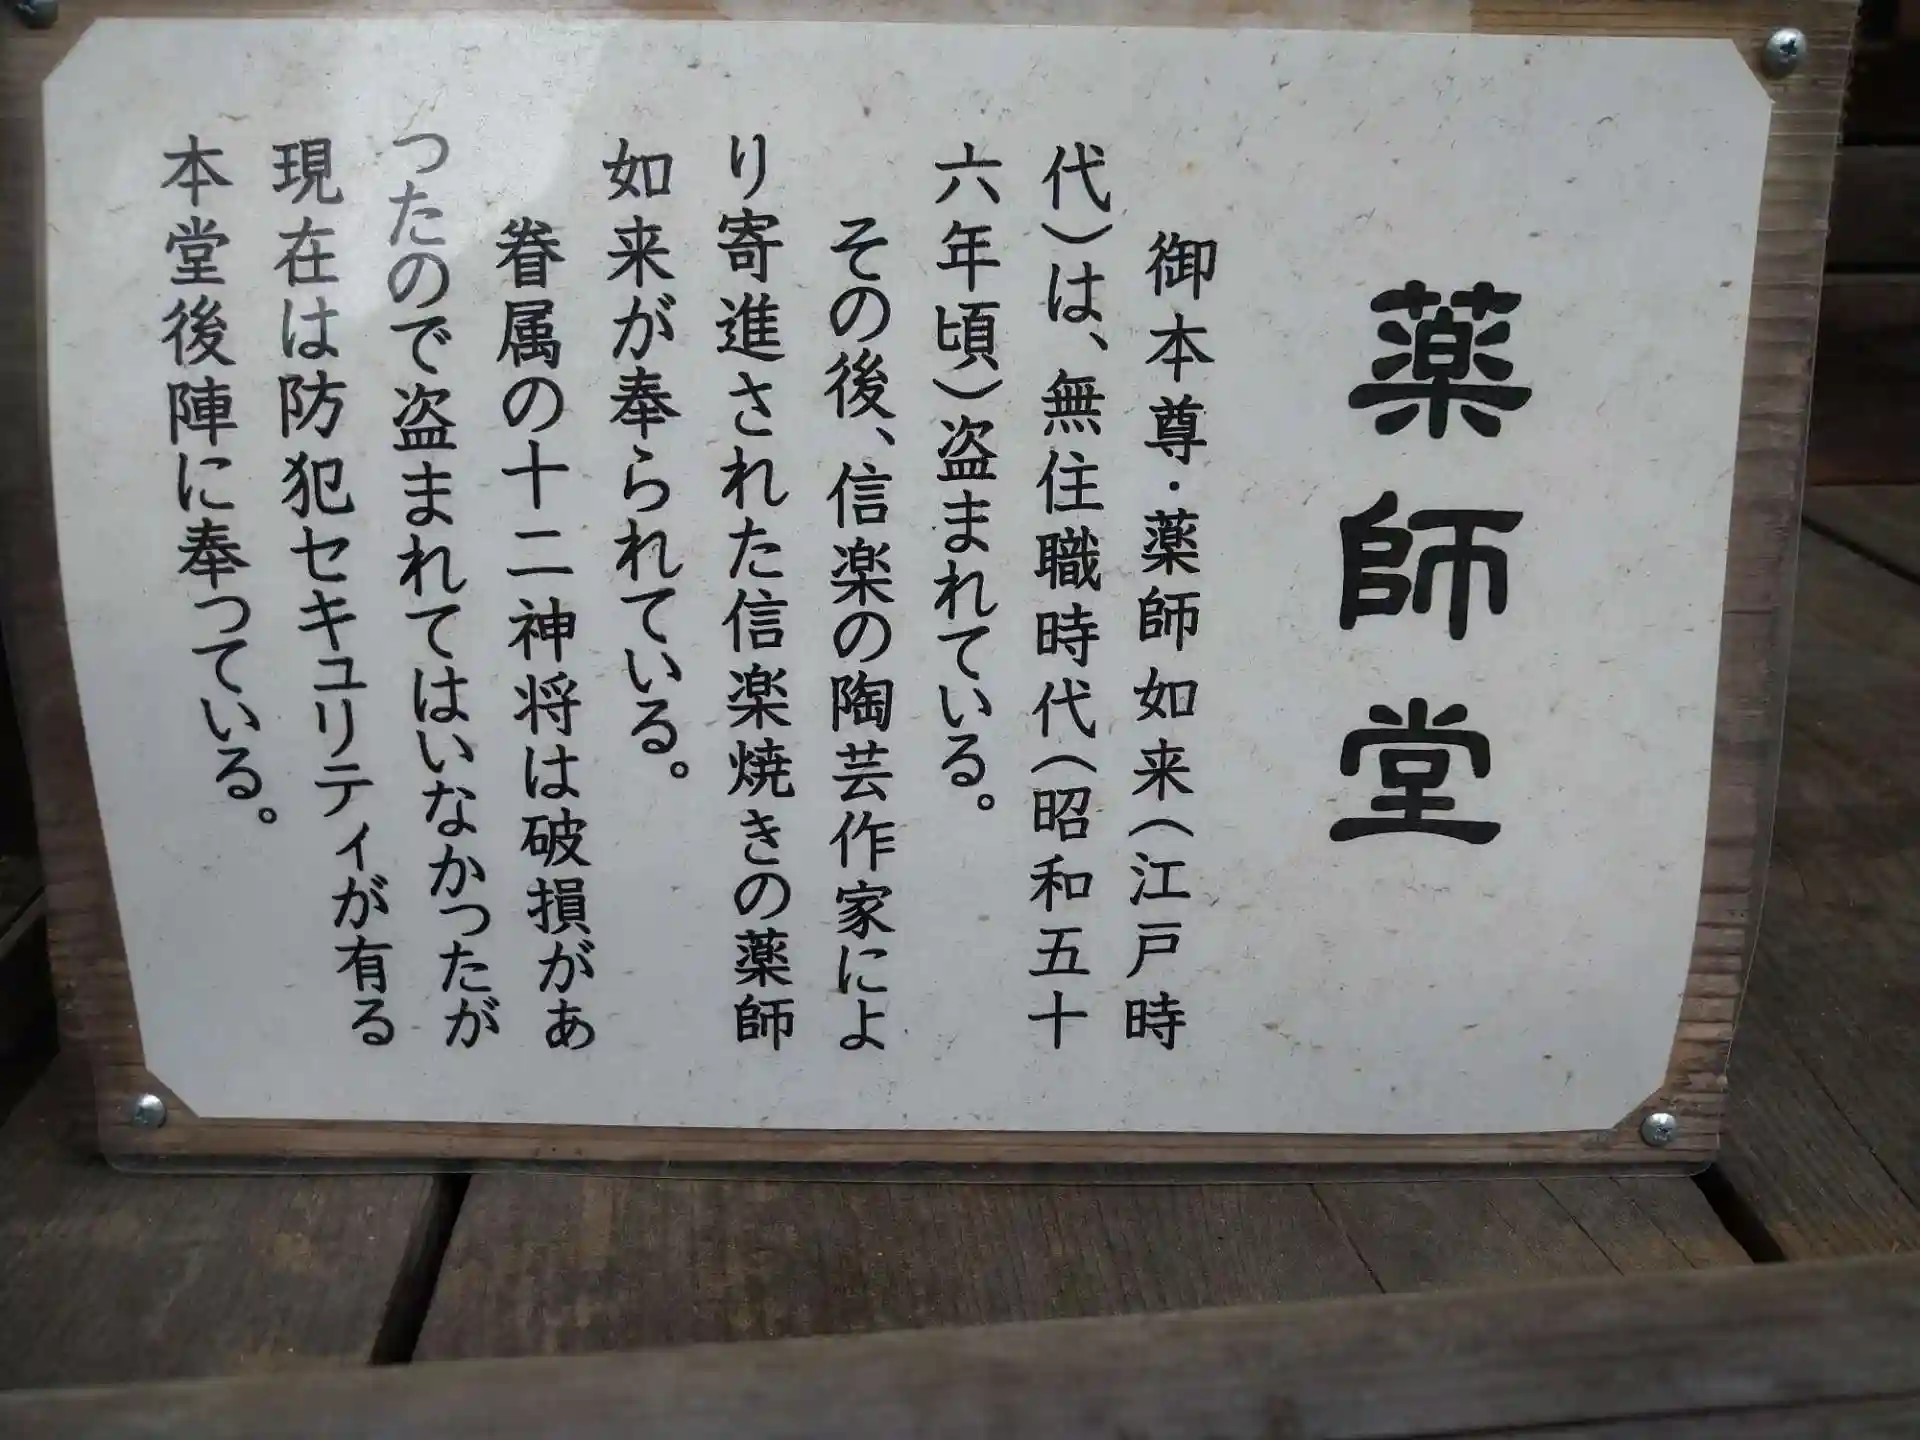 薬師堂
御本尊・薬師如来（江戸時
代）は、無住職時代（昭和五十
六年頃）盗まれている。
その後、信楽の陶芸作家によ
り寄進された信楽焼きの薬師
如来が奉られている。
眷属の十二神将は破損があ
ったので盗まれてはいなかったが
現在は防犯セキュリティが有る
本堂後陣に奉っている。